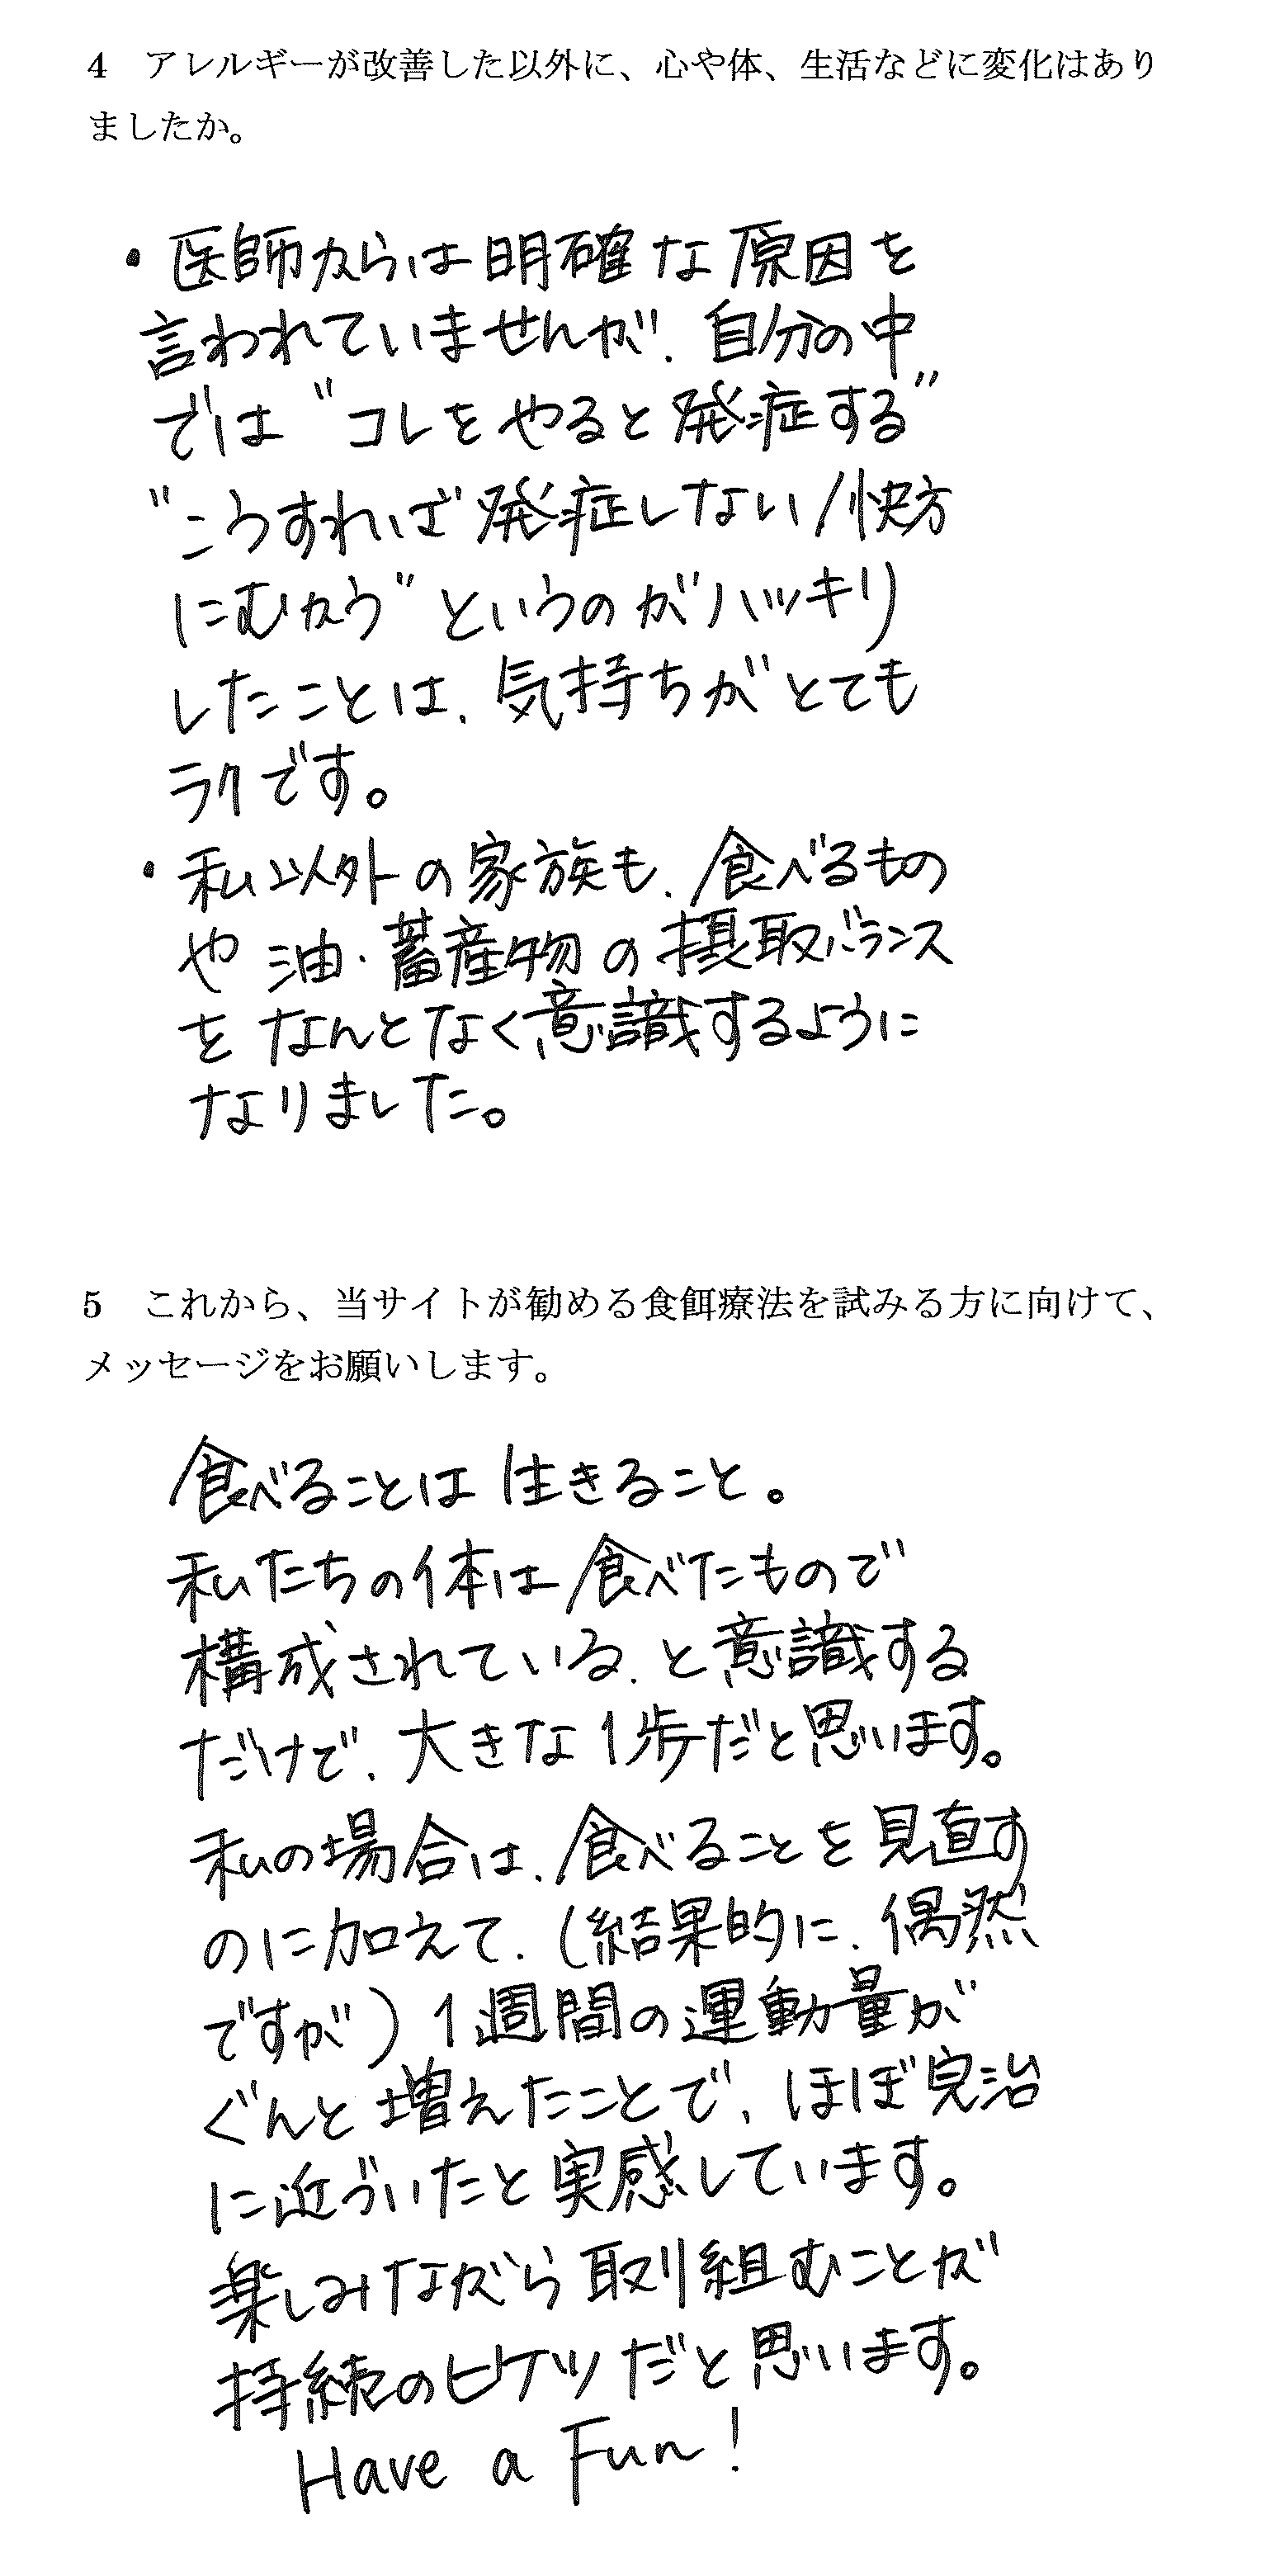 4　アレルギーが改善した以外に、心や体、生活などに変化はあり
ましたか。
・医師からは明確な原因を
言われていませんが、自分の中
では"コレをやると発症する"
"こうすれば発症しない/快方
にむかう"というのがハッキリ
したことは、気持ちがとても
ラクです。
・私以外の家族も、食べるもの
や油・蓄産物の摂取バランス
をなんとなく意識するように
なりました。
5　これから、当サイトが勧める食餌療法を試みる方に向けて、
メッセージをお願いします。
食べることは生きること。
私たちの体は食べたもので
構成されている、と意識する
だけで、大きな1歩だと思います。
私の場合は、食べることを見直す
のに加えて、(結果的に、偶然
ですが)1週間の運動量が
ぐんと増えたことで、ほぼ完治
に近づいたと実感しています。
楽しみながら取り組むことが
持続のヒケツだと思います。
Have a Fun!